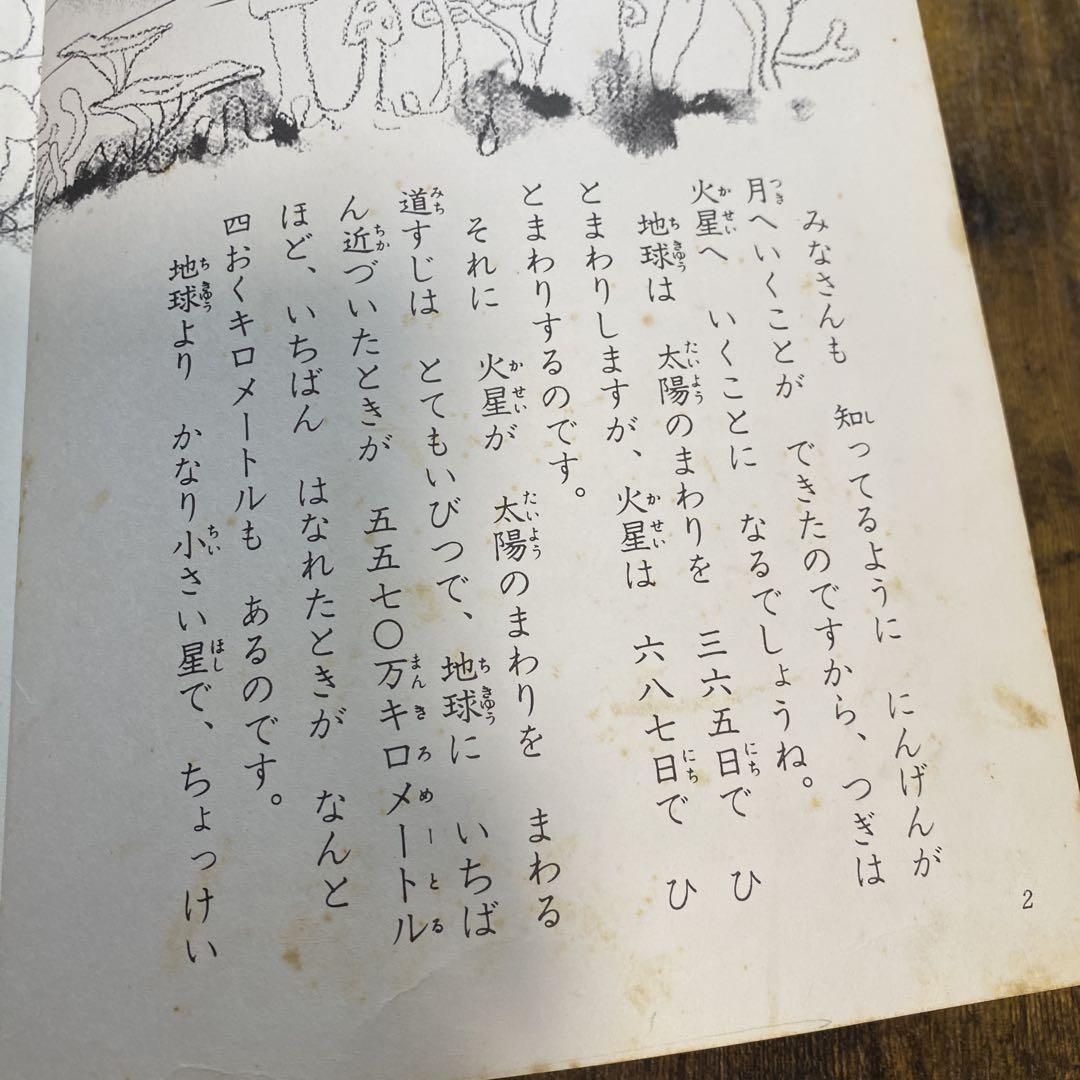 みなさんも　知ってるように　にんげんが
月へいくことが　できたのですから、つぎは
火星へ　いくことに　なるでしょうね。
地球は　太陽のまわりを　三六五日で　ひ
とまわりしますが、火星は　六八七日で　ひ
とまわりするのです。
それに　火星が　太陽のまわりを　まわる
道すじは　とてもいびつで、地球に　いちば
ん近づいたときが　五五七〇万キロメートル
ほど、いちばん　はなれたときが　なんと
四おくキロメートルも　あるのです。
地球より　かなり小さい星で、ちょっけい
2